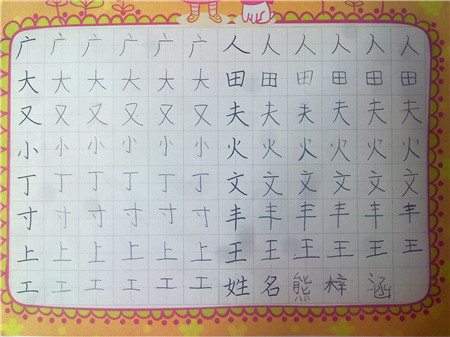 广广广广广广人人人人人人
大大大大大大田田田田田田
又又又又又又夫夫夫夫夫夫
小小小小小小火火火火火火
丁丁丁丁丁丁文文文文文文
寸寸寸寸寸寸丰丰丰丰丰丰
上上上上上上王王王王王王
工工工工工工姓名熊梓涵